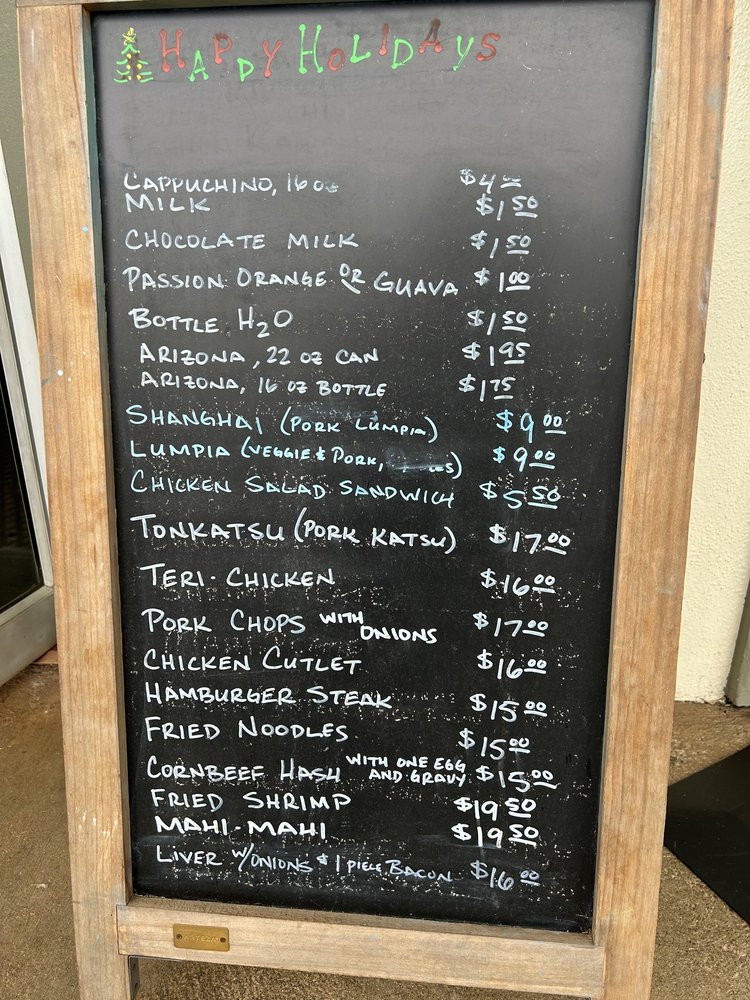 HAPPY HOLIDAYS
CAPPUCHINO, 16 oz $4.00
MILK $1.50
CHOCOLATE MILK $1.50
PASSION ORANGE OR GUAVA $1.00
BOTTLE H2O $1.50
ARIZONA, 22 OZ CAN $1.95
ARIZONA, 16 OZ BOTTLE $1.75
SHANGHAI (PORK LUMPIA) $9.00
LUMPIA (VEGGIE & PORK, ) $9.00
CHICKEN SALAD SANDWICH $5.50
TONKATSU (PORK KATSU) $17.00
TERI-CHICKEN $16.00
PORK CHOPS WITH ONIONS $17.00
CHICKEN CUTLET $16.00
HAMBURGER STEAK $15.00
FRIED NOODLES $15.00
CORNBEEF HASH WITH ONE EGG AND GRAVY $15.00
FRIED SHRIMP $19.50
MAHI-MAHI $19.50
LIVER W/ONIONS & 1 PIECE BACON $16.00